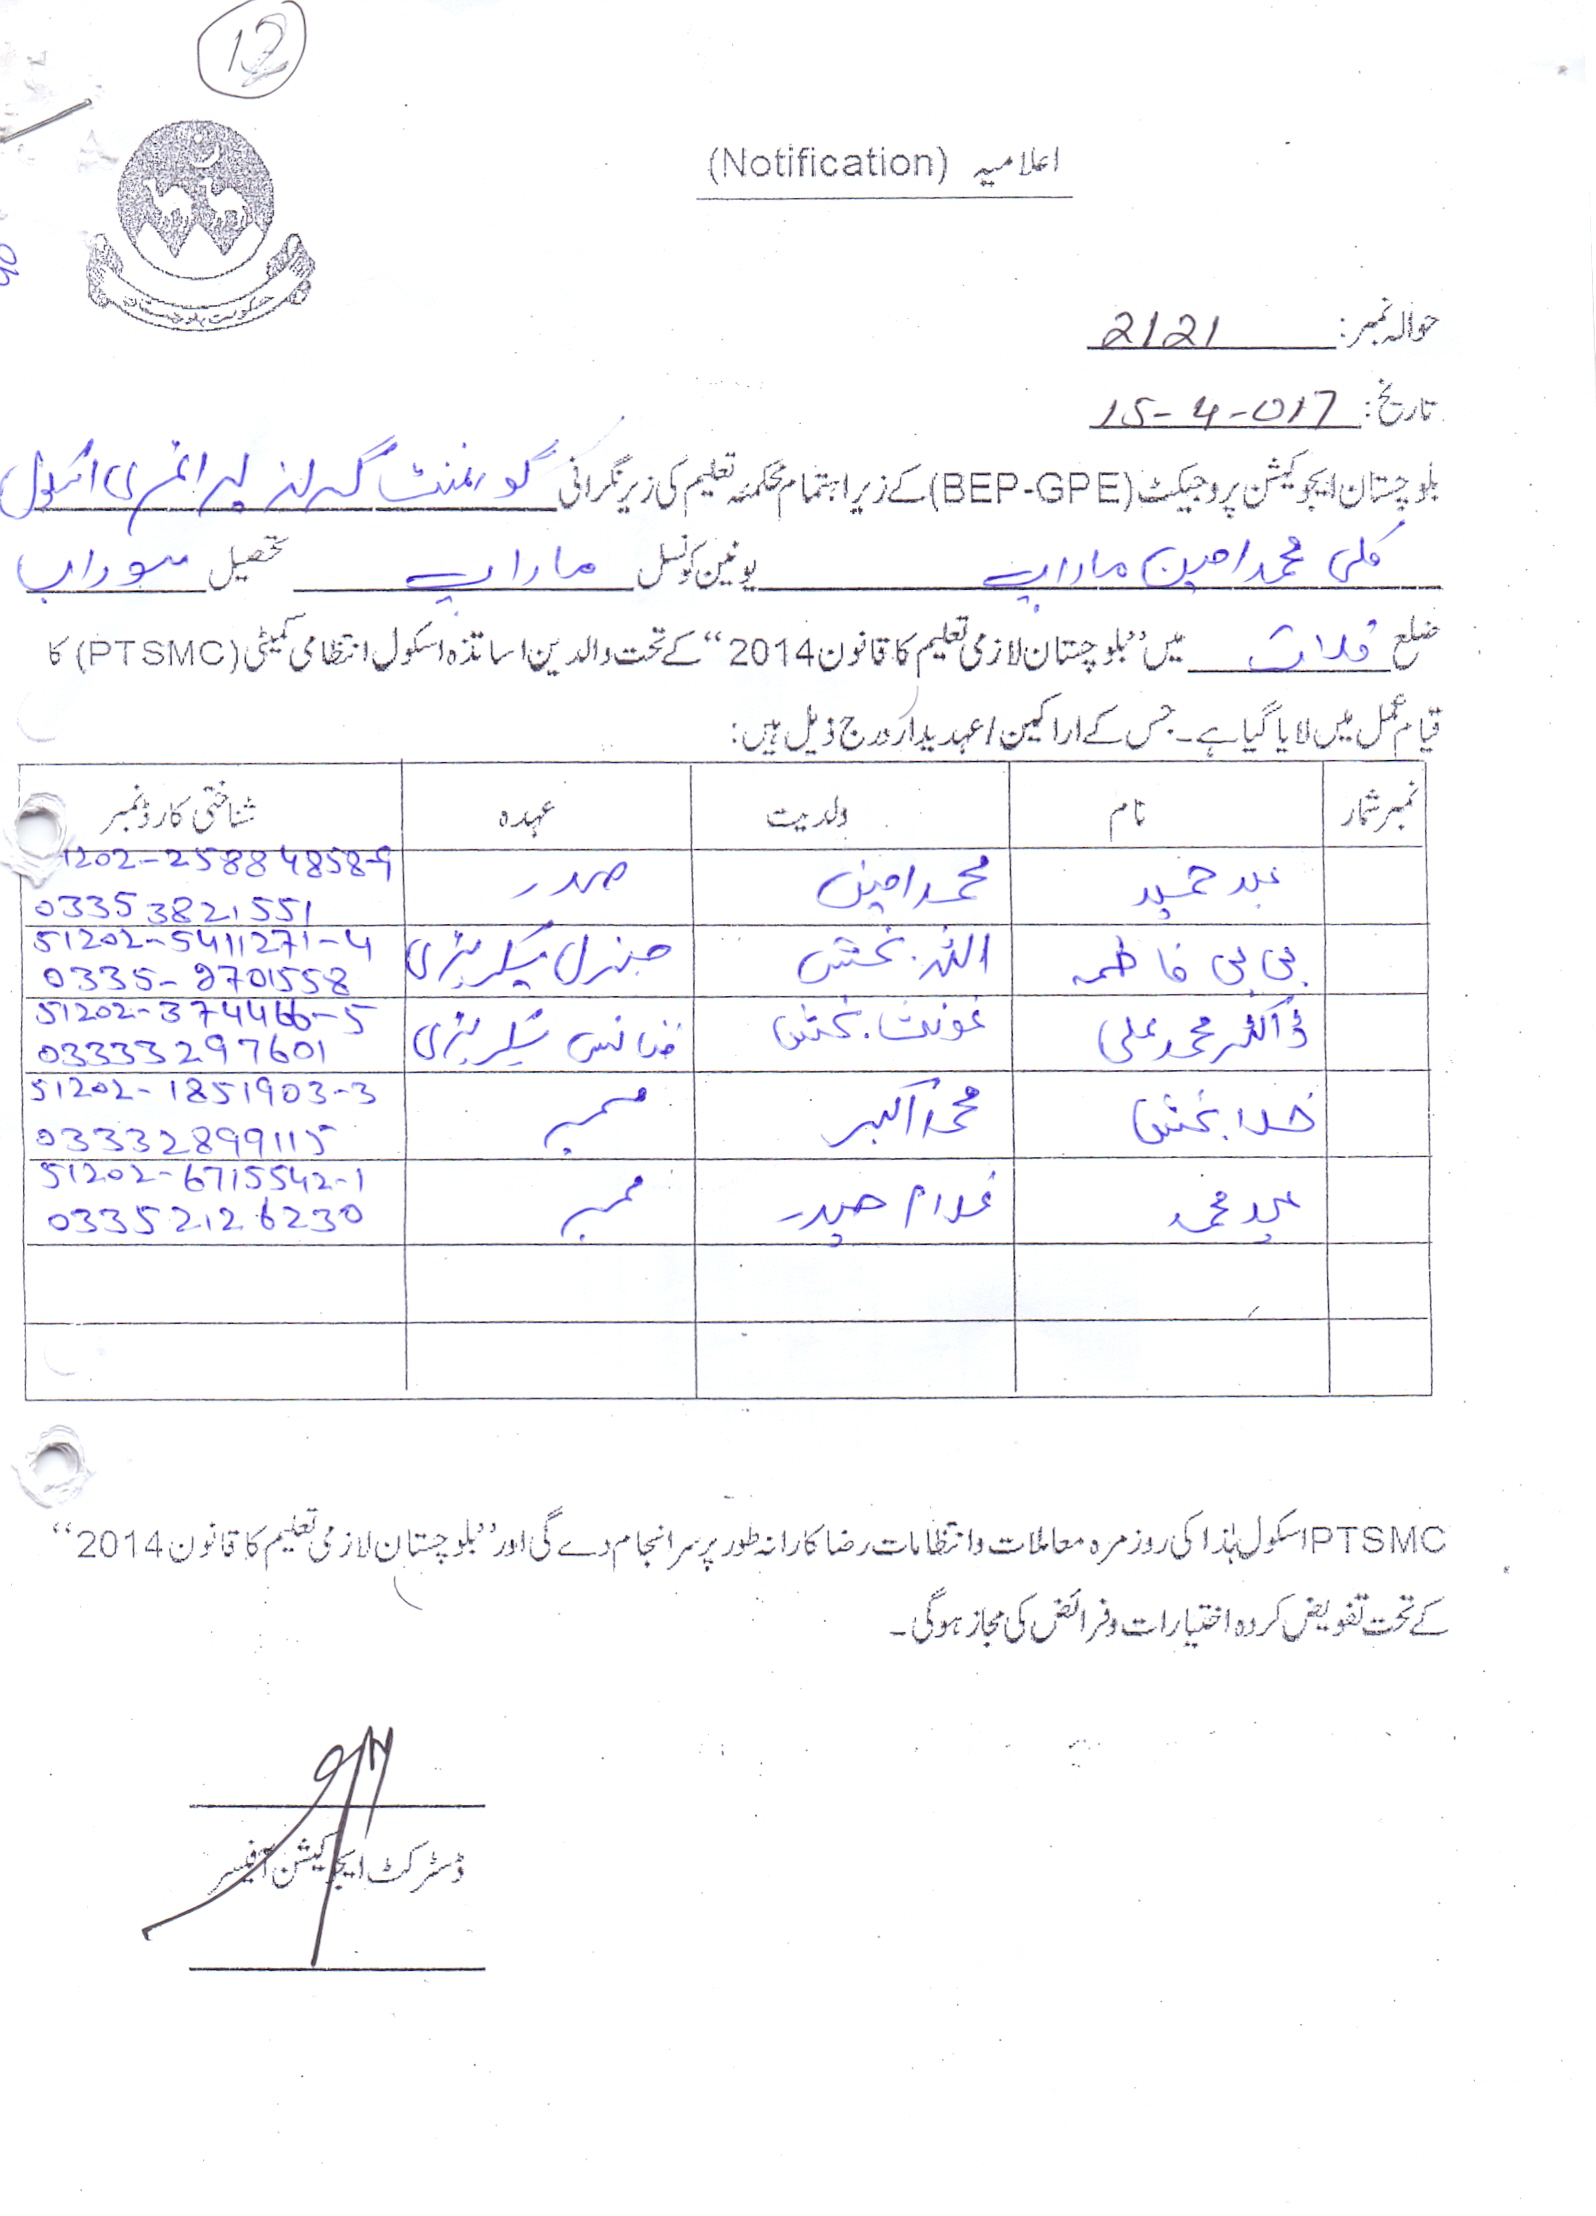 12
اعلامیہ (Notification)
حکومت بلوچستان
حوالہ نمبر: 2121
تاریخ: 15-4-017
بلوچستان ایجوکیشن پروجیکٹ (BEP-GPE) کے زیر اہتمام محکمہ تعلیم کی زیر نگرانی گورنمنٹ گرلز پرائمری اسکول
کلی محمد امین ماراپ یونین کونسل ماراپ تحصیل سوراب
ضلع قلات میں ”بلوچستان لازمی تعلیم کا قانون 2014“ کے تحت والدین اساتذہ اسکول انتظامی کمیٹی (PTSMC) کا
قیام عمل میں لایا گیا ہے۔ جس کے اراکین / عہدیدار درج ذیل ہیں:
نمبر شمار نام ولدیت عہدہ شناختی کارڈ نمبر
عبد حمید محمد امین صدر 1202-25884858-9
03353821551
بی بی فاطمہ اللہ بخش جنرل سیکریٹری 51202-5411271-4
0335-2701558
ڈاکٹر محمد علی غوث بخش فنانس سیکریٹری 51202-374466-5
03333297601
خدا بخش محمد اکبر ممبر 51202-1851903-3
03332899115
عید محمد غلام حیدر ممبر 51202-6715542-1
03352126230
PTSMC اسکول ہٰذا کی روز مرہ معاملات و انتظامات رضاکارانہ طور پر سرانجام دے گی اور ”بلوچستان لازمی تعلیم کا قانون 2014“
کے تحت تفویض کردہ اختیارات و فرائض کی مجاز ہوگی۔
ڈسٹرکٹ ایجوکیشن آفیسر